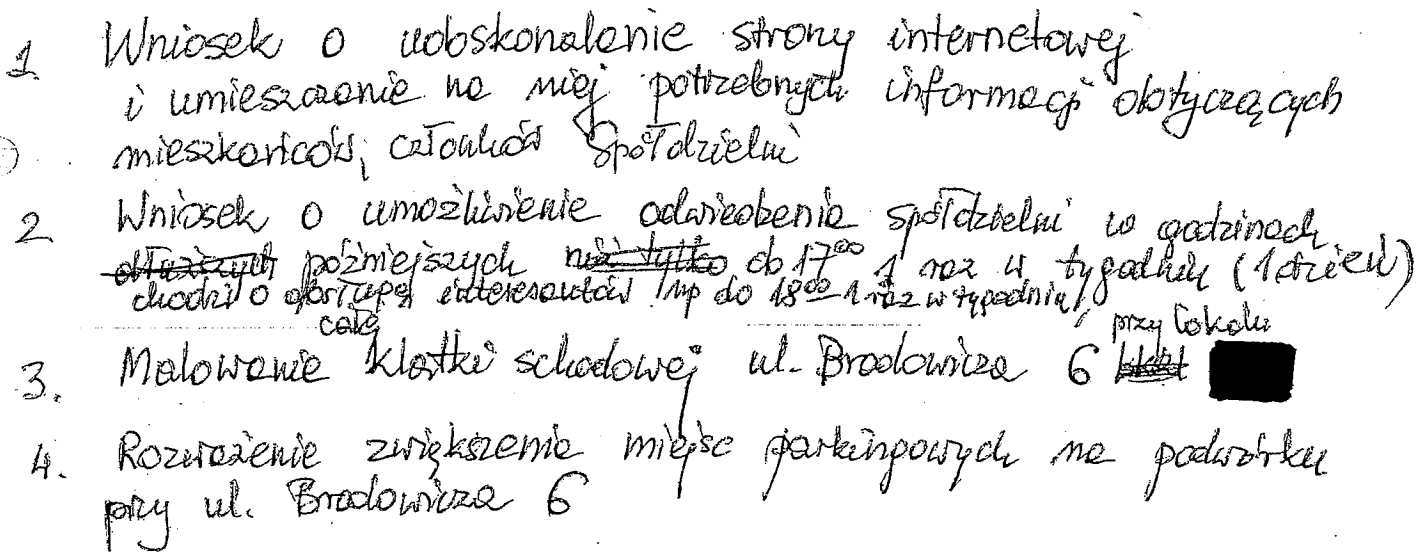 1. Wniosek o udoskonalenie strony internetowej
i umieszczenie na niej potrzebnych informacji dotyczących
mieszkańców, członków Spółdzielni
2 Wniosek o umożliwienie odwiedzenia spółdzielni w godzinach
dłuższych późniejszych niż tylko do 17⁰⁰ 1 raz w tygodniu (1 dzień)
chodzi o obsługę interesantów np do 18⁰⁰ 1 raz w tygodniu,
całej przy lokalu
3. Malowanie klatki schodowej ul. Brodowicza 6
4. Rozważenie zwiększenia miejsc parkingowych na podwórku
przy ul. Brodowicza 6